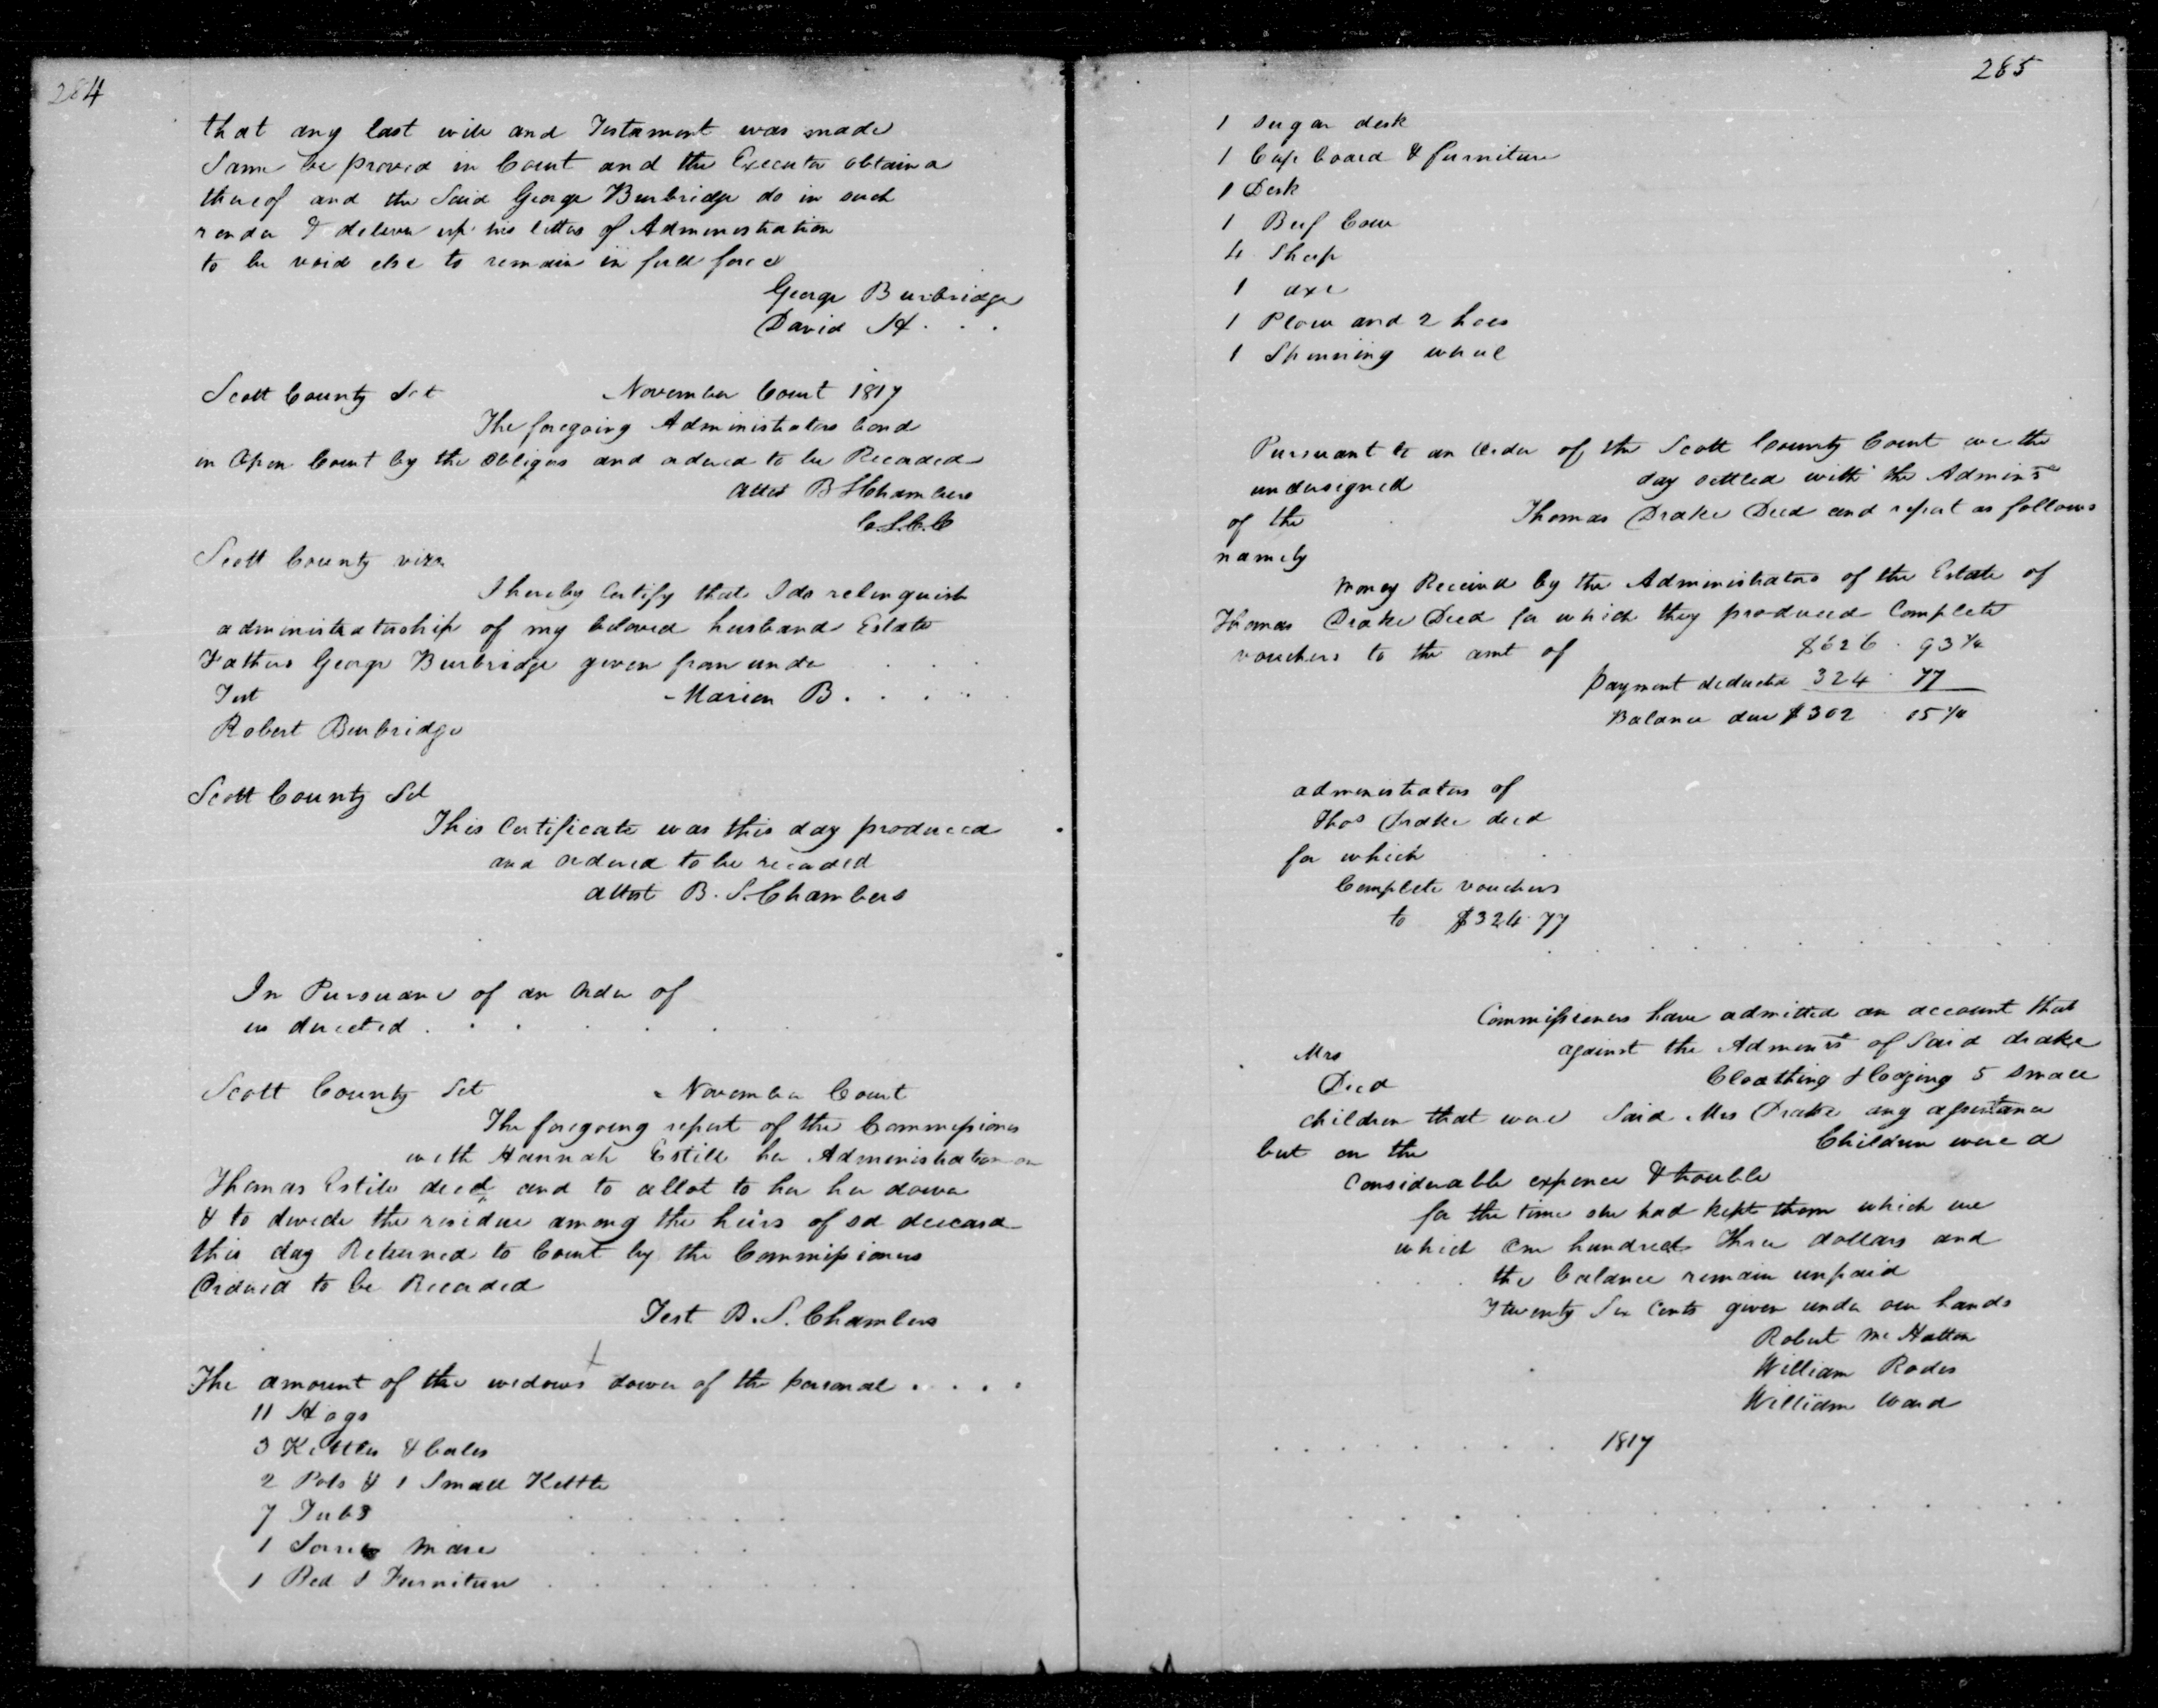 284
that any last will and Testament was made
Same be proved in Court and the Executor obtain a
thereof and the Said George Burbridge do in such
render & deliver up his letters of Administration
to be void else to remain in full force
George Burbridge
David H . . .
Scott County Sct November Court 1817
The foregoing Administrators bond
in Open Court by the Obligors and ordered to be Recorded
Attest B S Chambers
C.S.C.C
Scott County viz
I hereby Certify that I do relinquish
administratorship of my beloved husband Estate
Fathers George Burbridge given from under . . .
Test Marien B . . . .
Robert Burbridge
Scott County Sct
This Certificate was this day produced
and ordered to be recorded
attest B. S. Chambers
In Pursuance of an Order of
us directed . . . . . .
Scott County Sct November Court
The foregoing report of the Commissioners
with Hannah Estill her Administration on
Thomas Estill decd and to allot to her her dower
& to devide the residue among the heirs of sd deceasd
this day Returned to Court by the Commissioners
Ordered to be Recorded
Test B. S. Chambers
The amount of the widows dower of the personal . . . .
11 Hogs
3 Kettles &
2 Pots & 1 Small Kettle
7 Tubs
1 Sorrel Mare
1 Bed & Furniture
285
1 Sugar desk
1 Cup board & furniture
1 Desk
1 Beef Cow
4 Sheep
1 axe
1 Plow and 2 hoes
1 Spinning wheel
Pursuant to an Order of the Scott County Court we the
undersigned day settled with the Admins
of the Thomas Drake Decd and report as follows
namely
Money Received by the Administrators of the Estate of
Thomas Drake Decd for which they produced Complete
vouchers to the amt of $626 . 93¼
Payment deducted 324 . 77
Balance due $302 . 15¼
administrators of
Thos Drake decd
for which
Complete vouchers
to $324.77
Commissioners have admitted an account that
Mrs against the Admenrs of Said drake
Decd Cloathing & lodging 5 small
children that were Said Mrs Drake any assistance
but on the Children were a
Considerable expence & trouble
for the time she had kept them which we
which One hundred Three dollars and
the balance remain unpaid
Twenty Six Cents given under our hands
Robert Mc Hatton
William Rodes
William Ward
. . . . . . . . 1817